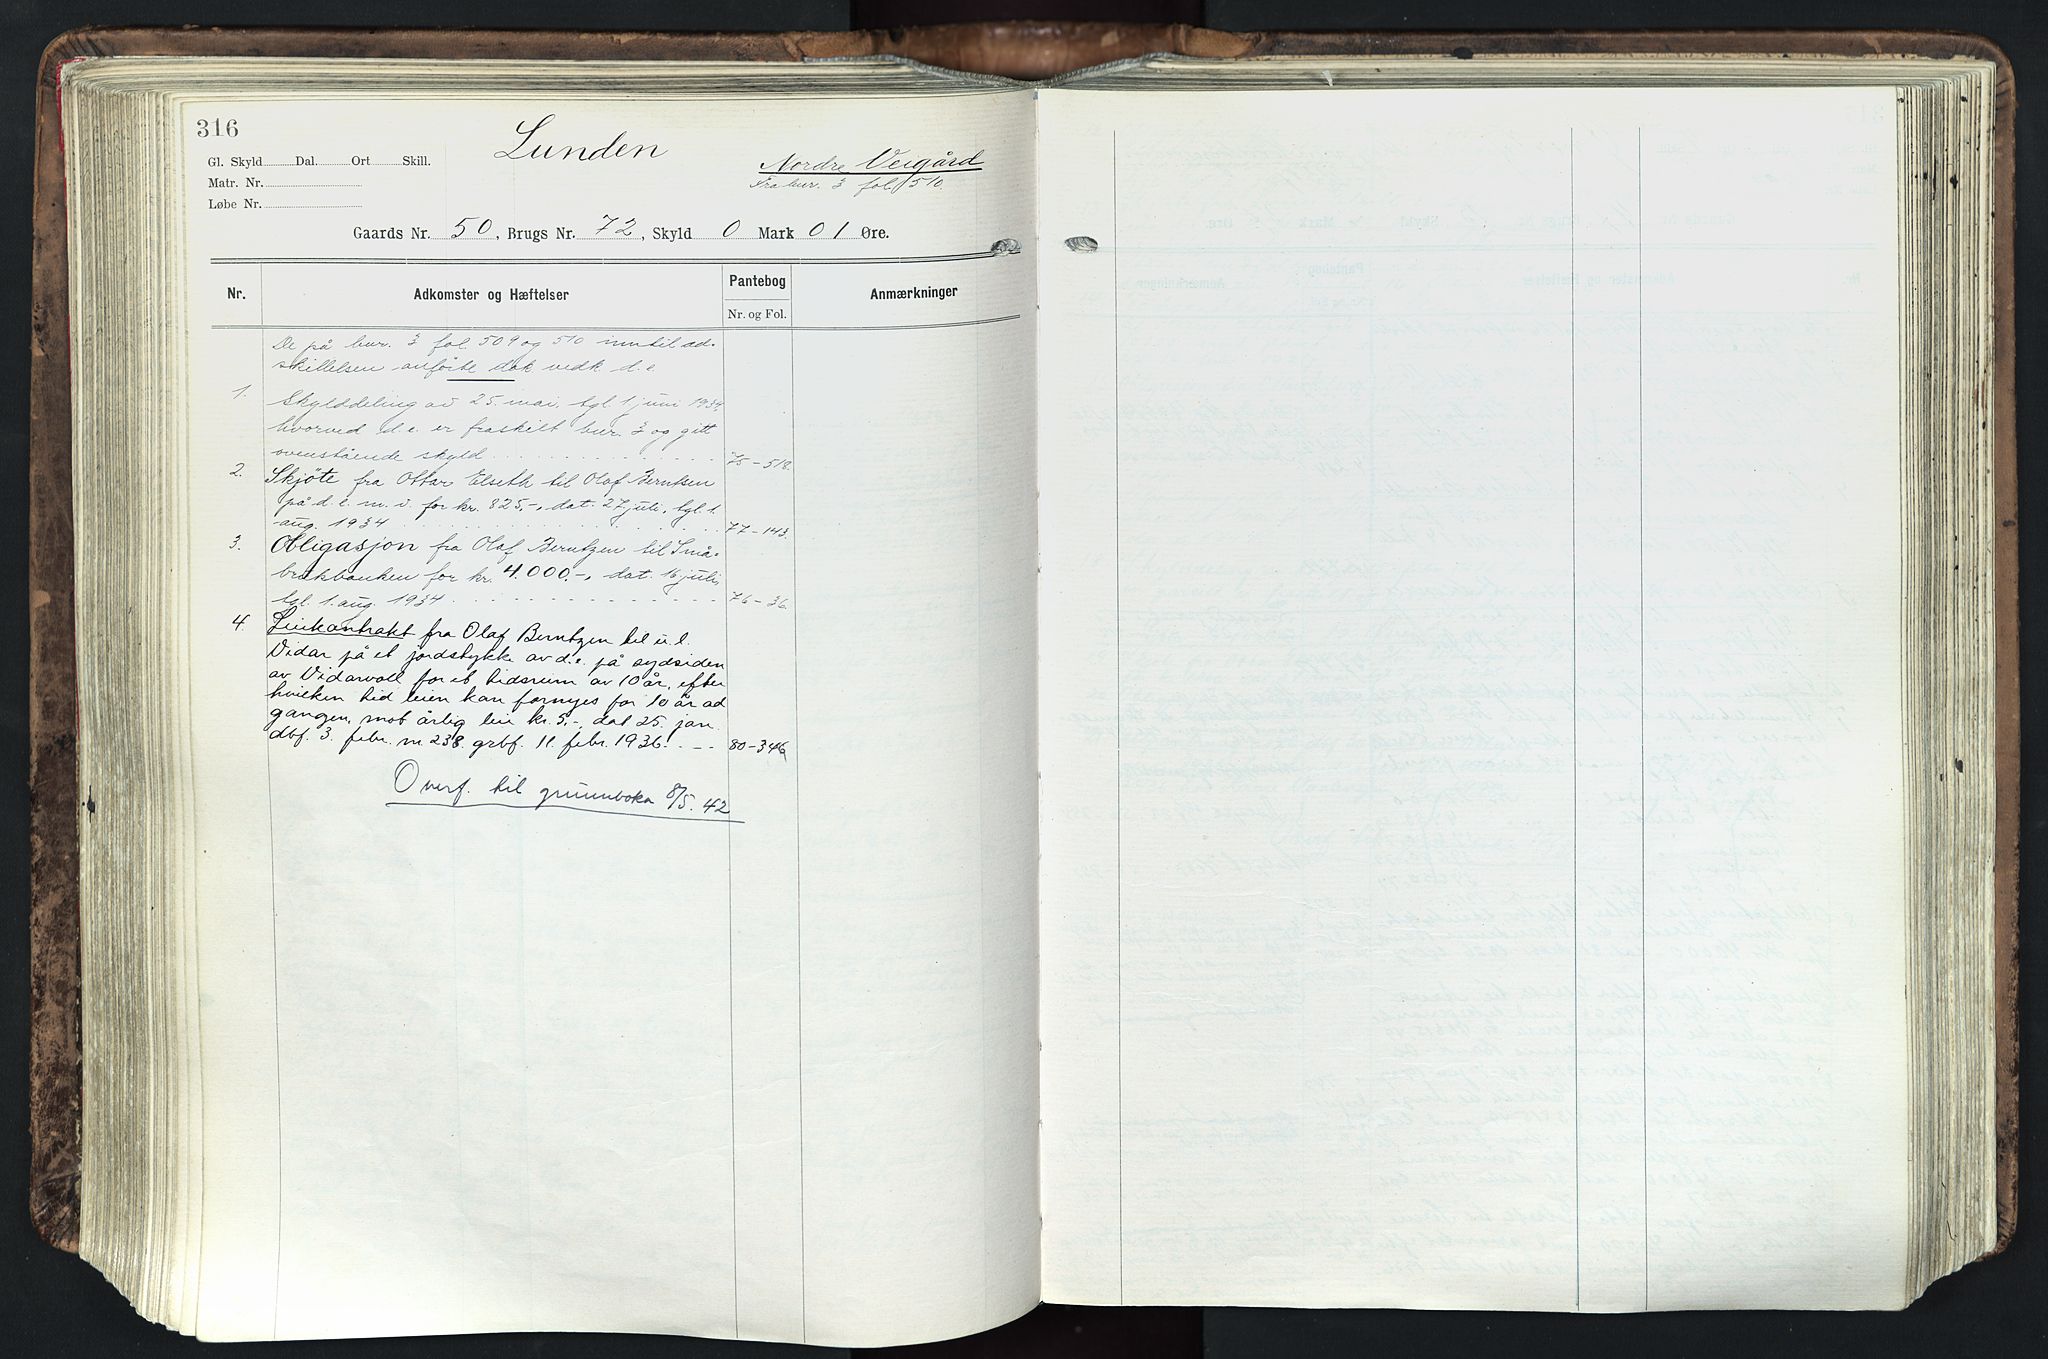 316
Lunden
Gl. Skyld Dal. Ort Skill.
Nordre Veigård
Matr. Nr.
Fra bnr. 3 fol. 510.
Løbe Nr.
Gaards Nr. 50, Brugs Nr. 72, Skyld 0 Mark 01 Øre.
Nr. Adkomster og Hæftelser Pantebog Anmærkninger
Nr. og Fol.
De på bnr. 3 fol. 509 og 510 inntil ad-
skillelsen anførte dok vedk d.e.
1. Skylddeling av 25. mai, tgl. 1 juni 1934,
hvorved d.e. er fraskilt bnr. 3 og gitt
ovenstående skyld 75-518.
2. Skjøte fra Ottar Elseth til Olaf Berntsen
på d.e. m.v. for kr. 825,-, dat. 27 juli, tgl. 1.
aug. 1934 77-143.
3. Obligasjon fra Olaf Berntzen til Små-
brukbanken for kr. 4.000,-, dat. 16 juli,
tgl. 1. aug. 1934 76-36.
4. Leiekontrakt fra Olaf Berntzen til u.l.
Vidar på et jordstykke av d.e. på sydsiden
av Vidarvoll for et tidsrum av 10 år, efter
hvilken tid leien kan fornyes for 10 år ad
gangen, mot årlig leie kr. 5,-, dat 25. jan.
dbf. 3. febr. nr. 238. grbf. 11. febr. 1936. 80-346
Overf. til grunnboka 8/5. 42